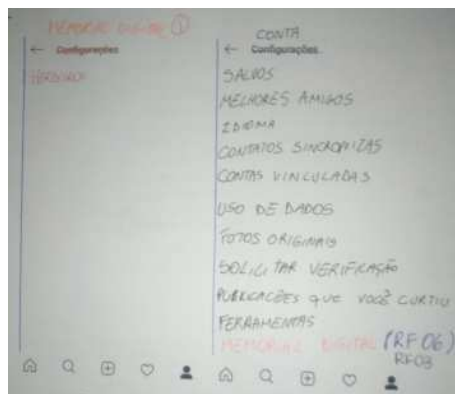 MEMORIAL DIGITAL 1
← Configurações
HERDEIROS
CONTA
← Configurações
SALVOS
MELHORES AMIGOS
IDIOMA
CONTATOS SINCRONIZAS
CONTAS VINCULADAS
USO DE DADOS
FOTOS ORIGINAIS
SOLICITAR VERIFICAÇÃO
PUBLICAÇÕES QUE VOCÊ CURTIU
FERRAMENTAS
MEMORIAL DIGITAL (RF 06)
RF03